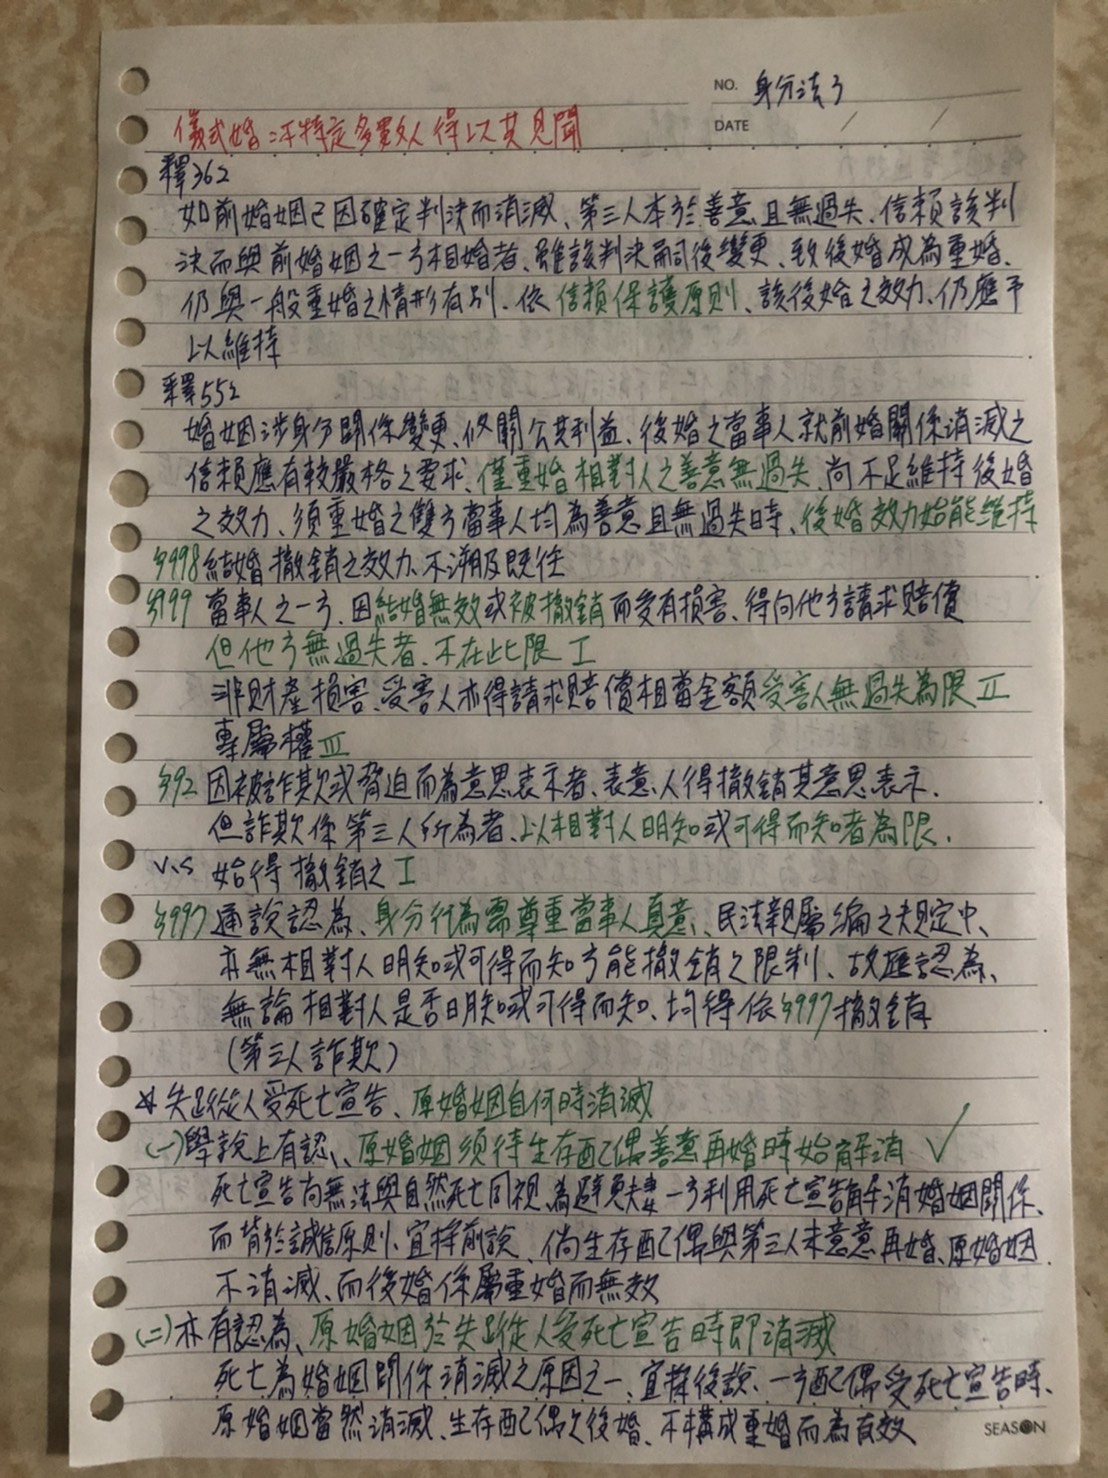 NO. 身分法3
DATE / /
儀式婚:不特定多數人得以共見聞
釋362
如前婚姻已因確定判決而消滅、第三人本於善意且無過失、信賴該判
決而與前婚姻之一方相婚者、雖該判決嗣後變更、致後婚成為重婚、
仍與一般重婚之情形有別、依信賴保護原則、該後婚之效力、仍應予
以維持
釋552
婚姻涉身分關係變更、攸關公共利益、後婚之當事人就前婚關係消滅之
信賴應有較嚴格之要求、僅重婚相對人之善意無過失、尚不足維持後婚
之效力、須重婚之雙方當事人均為善意且無過失時、後婚效力始能維持
§998 結婚撤銷之效力、不溯及既往
§999 當事人之一方、因結婚無效或被撤銷而受有損害、得向他方請求賠償
但他方無過失者、不在此限 I
非財產損害、受害人亦得請求賠償相當金額受害人無過失為限 II
專屬權 III
§92 因被詐欺或脅迫而為意思表示者、表意人得撤銷其意思表示.
但詐欺係第三人所為者、以相對人明知或可得而知者為限、
v.s 始得撤銷之 I
§997 通說認為、身分行為需尊重當事人真意、民法親屬編之規定中、
亦無相對人明知或可得而知方能撤銷之限制、故應認為、
無論相對人是否明知或可得而知、均得依§997撤銷
(第三人詐欺)
☆失蹤人受死亡宣告、原婚姻自何時消滅
(一)學說上有認、原婚姻須待生存配偶善意再婚時始解消 ✓
死亡宣告尚無法與自然死亡同視、為避免夫妻一方利用死亡宣告解消婚姻關係、
而背於誠信原則、宜採前說、倘生存配偶與第三人未意意再婚、原婚姻
不消滅、而後婚係屬重婚而無效
(二)亦有認為、原婚姻於失蹤人受死亡宣告時即消滅
死亡為婚姻關係消滅之原因之一、宜採後說、一方配偶受死亡宣告時、
原婚姻當然消滅、生存配偶之後婚、不構成重婚而為有效
SEASON